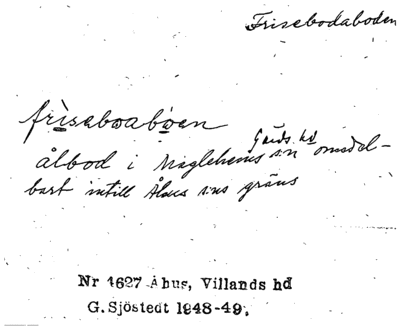 Frisebodaboden
frìsebơabơen
Gärds hd
ålbod i Maglehems s:n omedel-
bart intill Åhus s:ns gräns
Nr 1627 Åhus, Villands hd
G. Sjöstedt 1948-49.